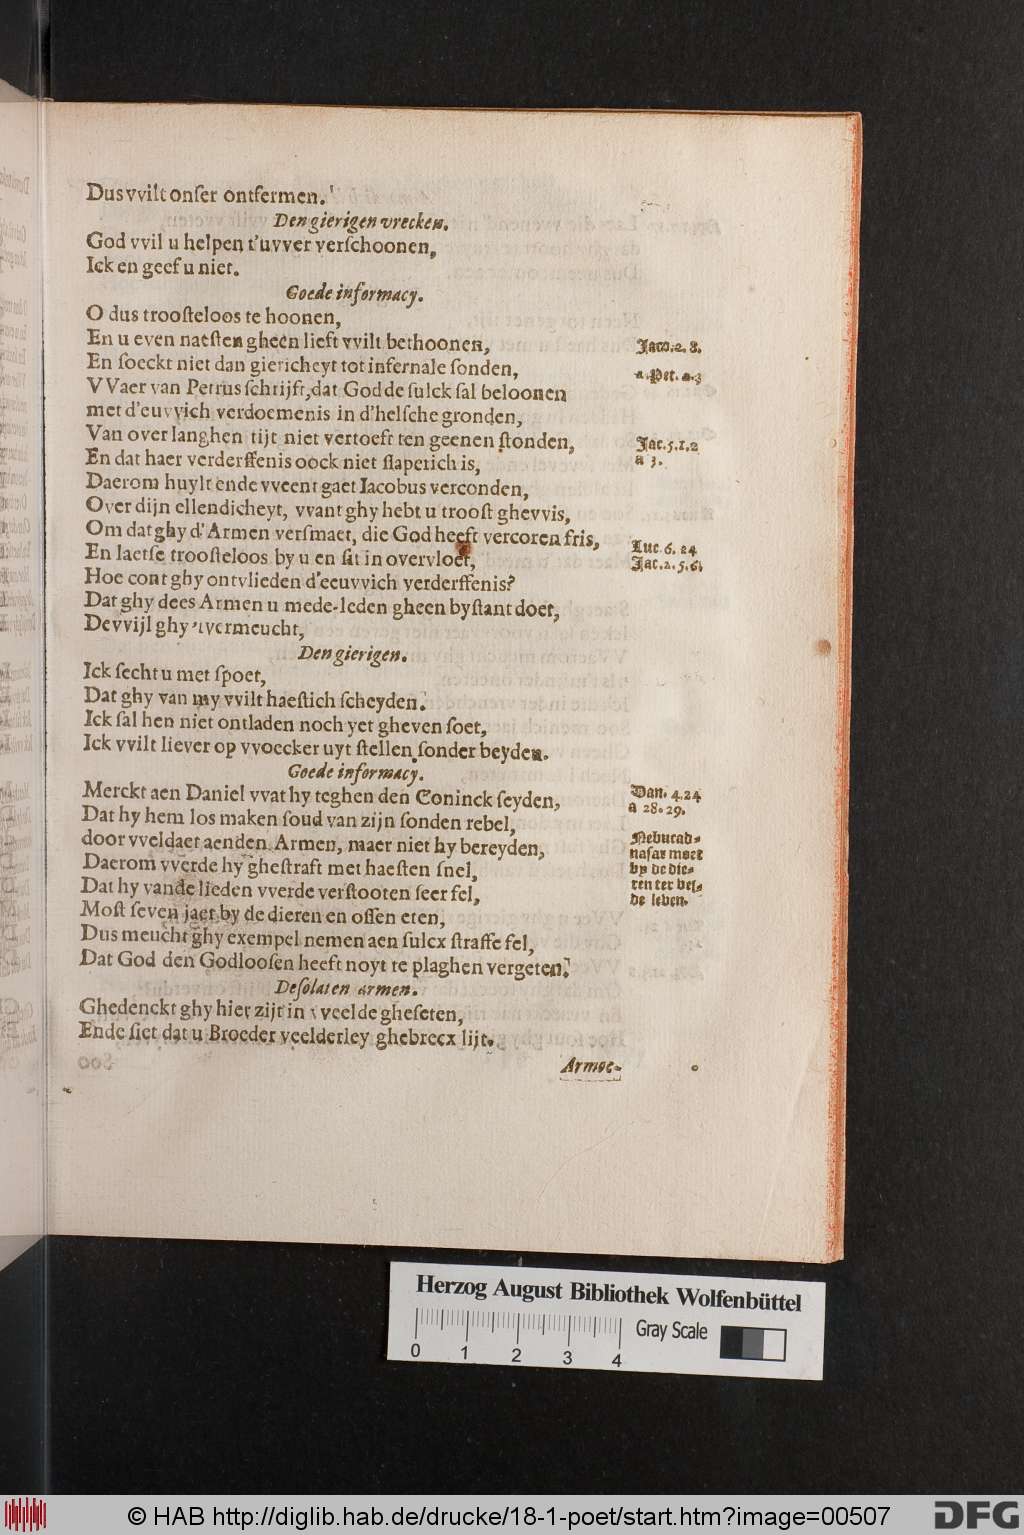 Dus vvilt onſer ontfermen.
Den gierigen vrecken.
God vvil u helpen t'uvver verſchoonen,
Ick en geef u niet.
Goede informacy.
O dus trooſteloos te hoonen,
En u even naeſten gheen lieft vvilt bethoonen,
Jaco. 2. 8.
En ſoeckt niet dan giericheyt tot infernale ſonden,
2. Pet. 2. 3
VVaer van Petrus ſchrijft, dat God de ſulck ſal beloonen
met d'euvvich verdoemenis in d'helſche gronden,
Van over langhen tijt niet vertoeft ten geenen ſtonden,
Jac. 5. 1. 2
En dat haer verderffenis oock niet ſlaperich is,
a 3.
Daerom huylt ende vveent gaet Iacobus verconden,
Over dijn ellendicheyt, vvant ghy hebt u trooſt ghevvis,
Om dat ghy d'Armen verſmaet, die God heeft vercoren fris,
Luc. 6. 24
En laetſe trooſteloos by u en ſit in overvloet,
Jac. 2. 5. 6.
Hoe cont ghy ontvlieden d'eeuvvich verderffenis?
Dat ghy dees Armen u mede-leden gheen byſtant doet,
Devvijl ghy 't vermeucht,
Den gierigen.
Ick ſecht u met ſpoet,
Dat ghy van my vvilt haeſtich ſcheyden.
Ick ſal hen niet ontladen noch yet gheven ſoet,
Ick vvilt liever op vvoecker uyt ſtellen ſonder beyden.
Goede informacy.
Merckt aen Daniel vvat hy teghen den Coninck ſeyden,
Dan. 4. 24
Dat hy hem los maken ſoud van zijn ſonden rebel,
a 28. 29.
door vveldaet aenden Armen, maer niet hy bereyden,
Nebucad-
naſar moet
Daerom vverde hy gheſtraft met haeſten ſnel,
by de die-
Dat hy vande lieden vverde verſtooten ſeer fel,
ren ter vel-
de leven.
Moſt ſeven jaer by de dieren en oſſen eten,
Dus meucht ghy exempel nemen aen ſulcx ſtraffe fel,
Dat God den Godlooſen heeft noyt te plaghen vergeten.
Deſolaten armen.
Ghedenckt ghy hier zijt in vveelde gheſeten,
Ende ſiet dat u Broeder veelderley ghebrecx lijt.
Armoe-
Herzog August Bibliothek Wolfenbüttel
Gray Scale
0 1 2 3 4
© HAB http://diglib.hab.de/drucke/18-1-poet/start.htm?image=00507
DFG